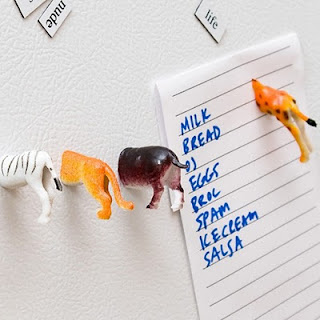 nude
life
MILK
BREAD
OJ
EGGS
BROC
SPAM
ICECREAM
SALSA